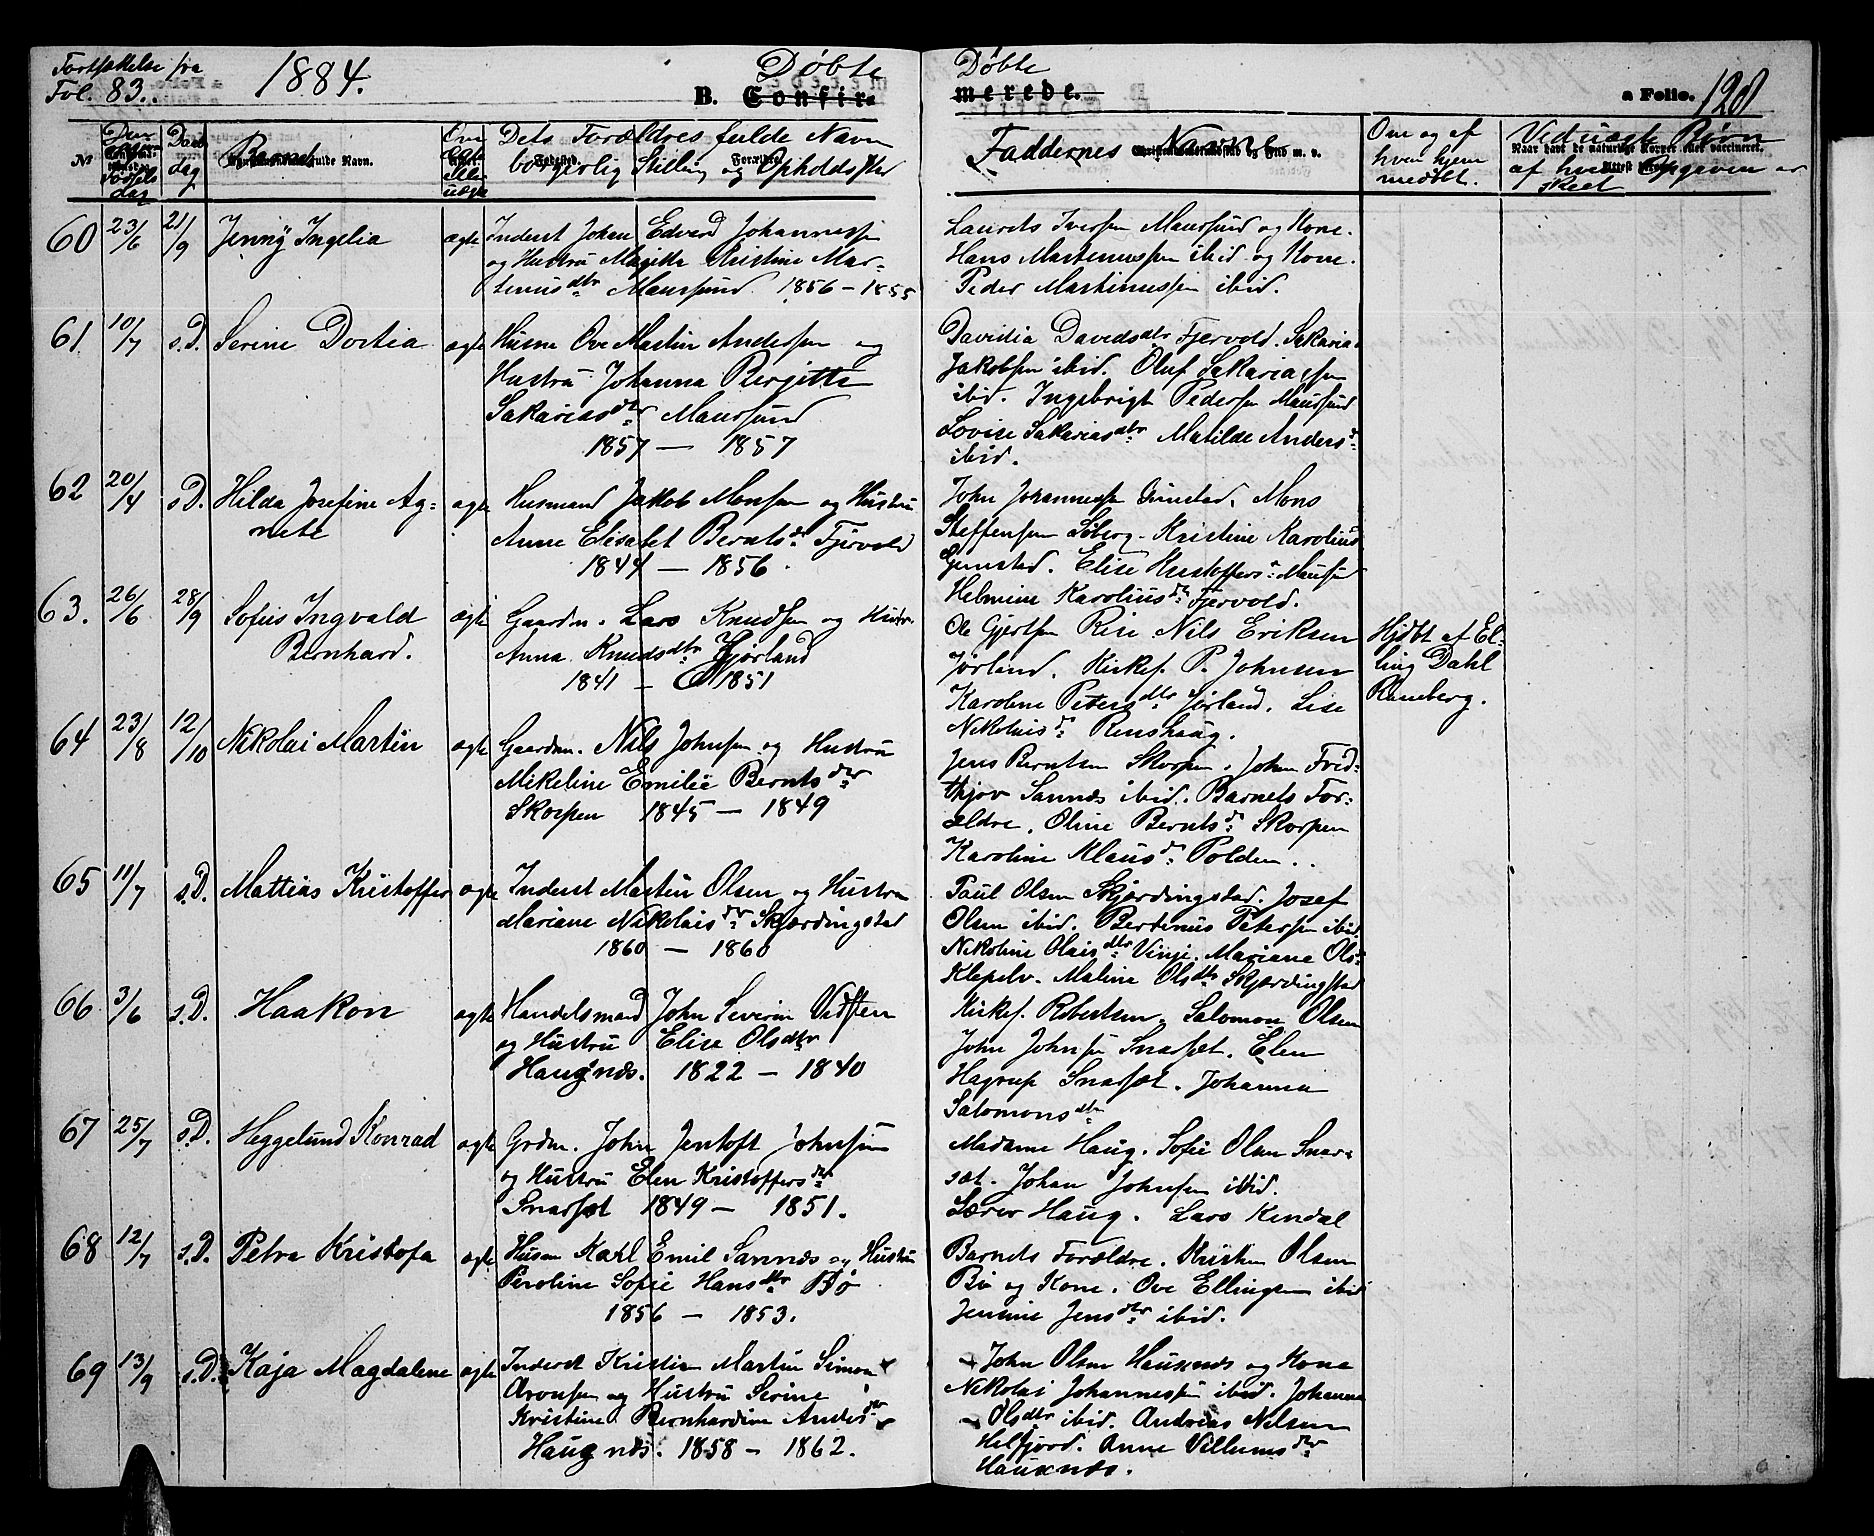 Fortsættelse fra
Fol. 83.
1884.
Døbte
B. Confir-
Døbte
merede.
a Folio. 128
No
Døbtes
Fødsels
dag
Daab
dag
Barnets fulde Navn.
Om
ægte
eller
uægte
Dets Forældres fulde Navn
borgerlig Stilling og Opholdssted
Faddernes Navne
Om og af
hvem hjem
medøbt.
Ved uægte Børn
af hvem Opgaven er
skeet
60 23/6 21/9 Jenny Ingelia ægte
Inderst Johan Edvard Johannessen
og Hustru Magitta Kristine Mar-
tinusdtr Maursund 1856 - 1855
Laurits Iversen Maursund og Kone.
Hans Martinussen ibid og Kone.
Peder Martinussen ibid.
61 10/7 s.D. Serine Dortia ægte
Husm Ove Martin Andersen og
Hustru Johanna Bergitte
Sakariasdtr Maursund
1857 — 1857
Davidia Davidsdtr Fjervold. Sakarias
Jakobsen ibid. Oluf Sakariassen
ibid. Ingebrigt Pedersen Maursund
Lovise Sakariasdtr Matilde Anders
ibid.
62 20/4 s.D. Hilda Josefine Ag-
nete ægte
Husmand Jakob Monsen og Hustru
Anne Elisabet Bernts dr Fjervold
1844 — 1856.
John Johannessen Grimstad. Mons
Steffensen Søberg. Kristine Karolius
Grimstad. Elise Kristoffers Maursund
Helmine Karoliusdtr Fjervold.
63. 26/6 28/9 Sofus Ingvald
Bernhard. ægte
Gaardm. Lars Knudsen og Hustru
Anna Knudsdtr Hjørland
1841 - 1851
Ole Gjertsen Rise Nils Eriksen
Jørland. Kirkes. P. Johnsen
Karoline Petersdtr Jørland. Lise
Nikolais dr Renshaug.
Hjdbt af El-
ling Dahl
Raneberg.
64 23/8 12/10 Nikolai Martin ægte
Gaardm. Nils Johnsen og Hustru
Mekeline Emilie Berntsdtr
Skorpen 1845 — 1849
Jens Berntsen Skorpen. Johan Frid-
thjov Sannæs ibid. Barnets For-
ældre. Oline Bernts dr Skorpen
Karoline Klaus dr Polden.
65 11/7 s.D. Mattias Kristoffer ægte
Inderst Martin Olsen og Hustru
Mariane Nikolaisdtr Skjærdingstad
1860 — 1860
Paul Olsen Skjærdingstad. Josef
Olsen ibid. Berdinus Petersen ibid.
Nikoline Olaisdtr Vinje. Mariane Ols-
Klepelv. Maline Olsdtr Skjærdingstad
66 3/6 s.D. Haakon ægte
Handelsmand John Severin Vadsten
og Hustru Elise Olsdtr
Haugnæs. 1822 — 1840
Kirkes. Robertsen. Salomon Olsen
John Johnsen Snarset. Elen
Hagrup Snarset. Johanna
Salomonsdtr
67 25/7 s.D. Heggelund Konrad ægte
Grdm. John Jentoft Johnsen
og Hustru Elen Kristoffersdtr
Snarset 1849 — 1851.
Madame Haug. Sofie Olsen Snar-
set. Johan Johnsen ibid.
Lærer Haug. Lars Kindal
68 12/7 s.D. Petra Kristofa ægte
Husm Karl Emil Sannæs og Hustru
Peroline Sofie Hansdtr Bø
1856 — 1853.
Barnets Forældre. Kristen Olsen
Bø og Kone. Ove Ellingsen ibid
Jensine Jensdtr ibid.
69 13/9 s.D. Kaja Magdalene ægte
Inderst Kristian Martin Simon
Aronsen og Hustru Serine
Kristine Bernhardine Andersdtr
Haugnæs. 1858 - 1862.
John Olsen Hauknæs og Kone
Nikolai Johannessen ibid. Johanna
Olsdtr ibid. Andreas Nilsen
Helfjord. Anne Villumsdtr
Hauknæs.